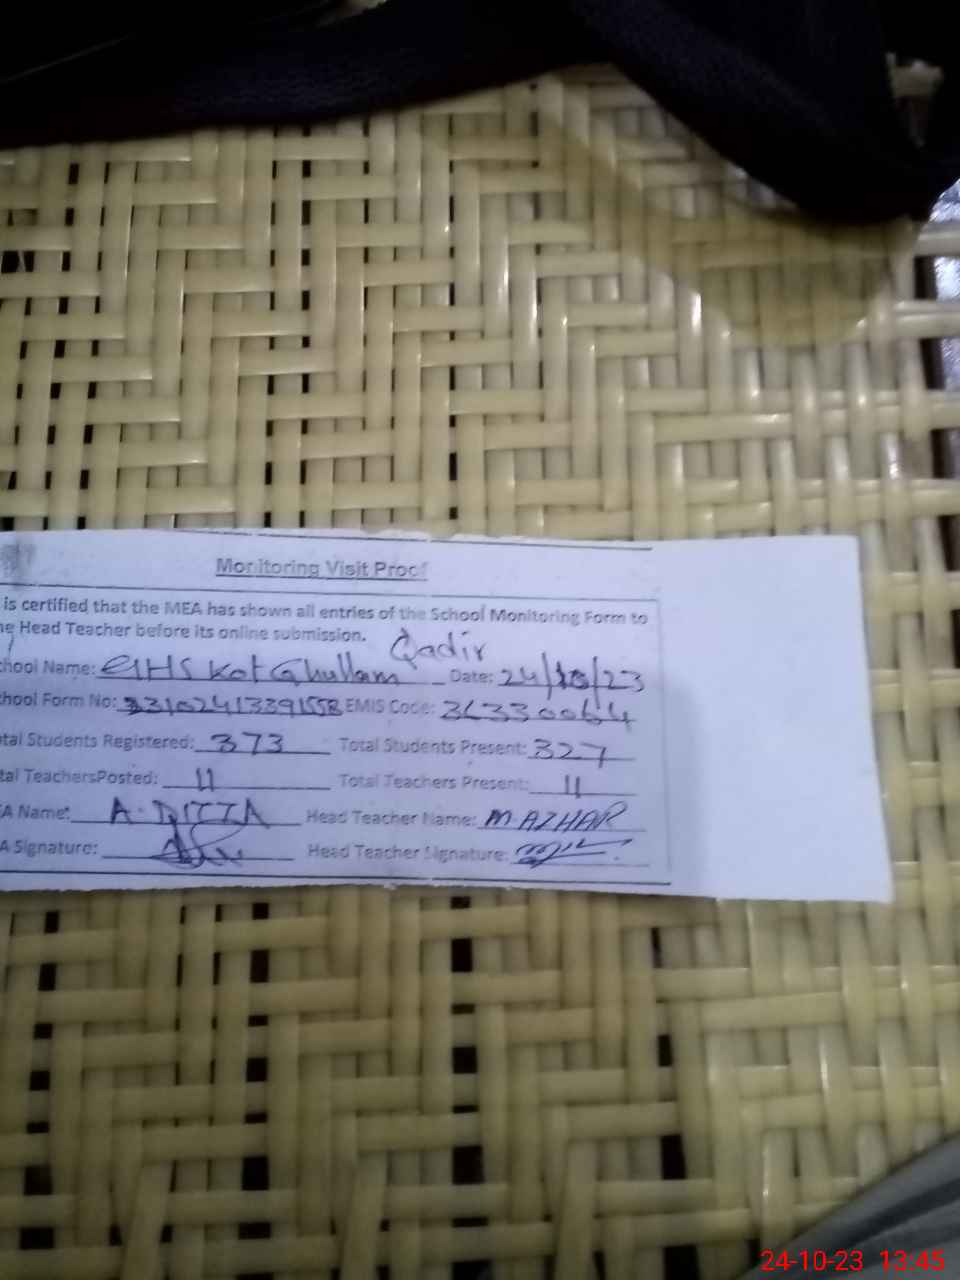 Monitoring Visit Proof
is certified that the MEA has shown all entries of the School Monitoring Form to
he Head Teacher before its online submission.
Qadir
chool Name: GHS Kot Ghullam Date: 24/10/23
chool Form No: EMIS Code:
tal Students Registered: 373 Total Students Present: 327
tal TeachersPosted: 11 Total Teachers Present: 11
A Name: A. DITTA Head Teacher Name: M AZHAR
A Signature: Head Teacher Signature:
24-10-23 13:45